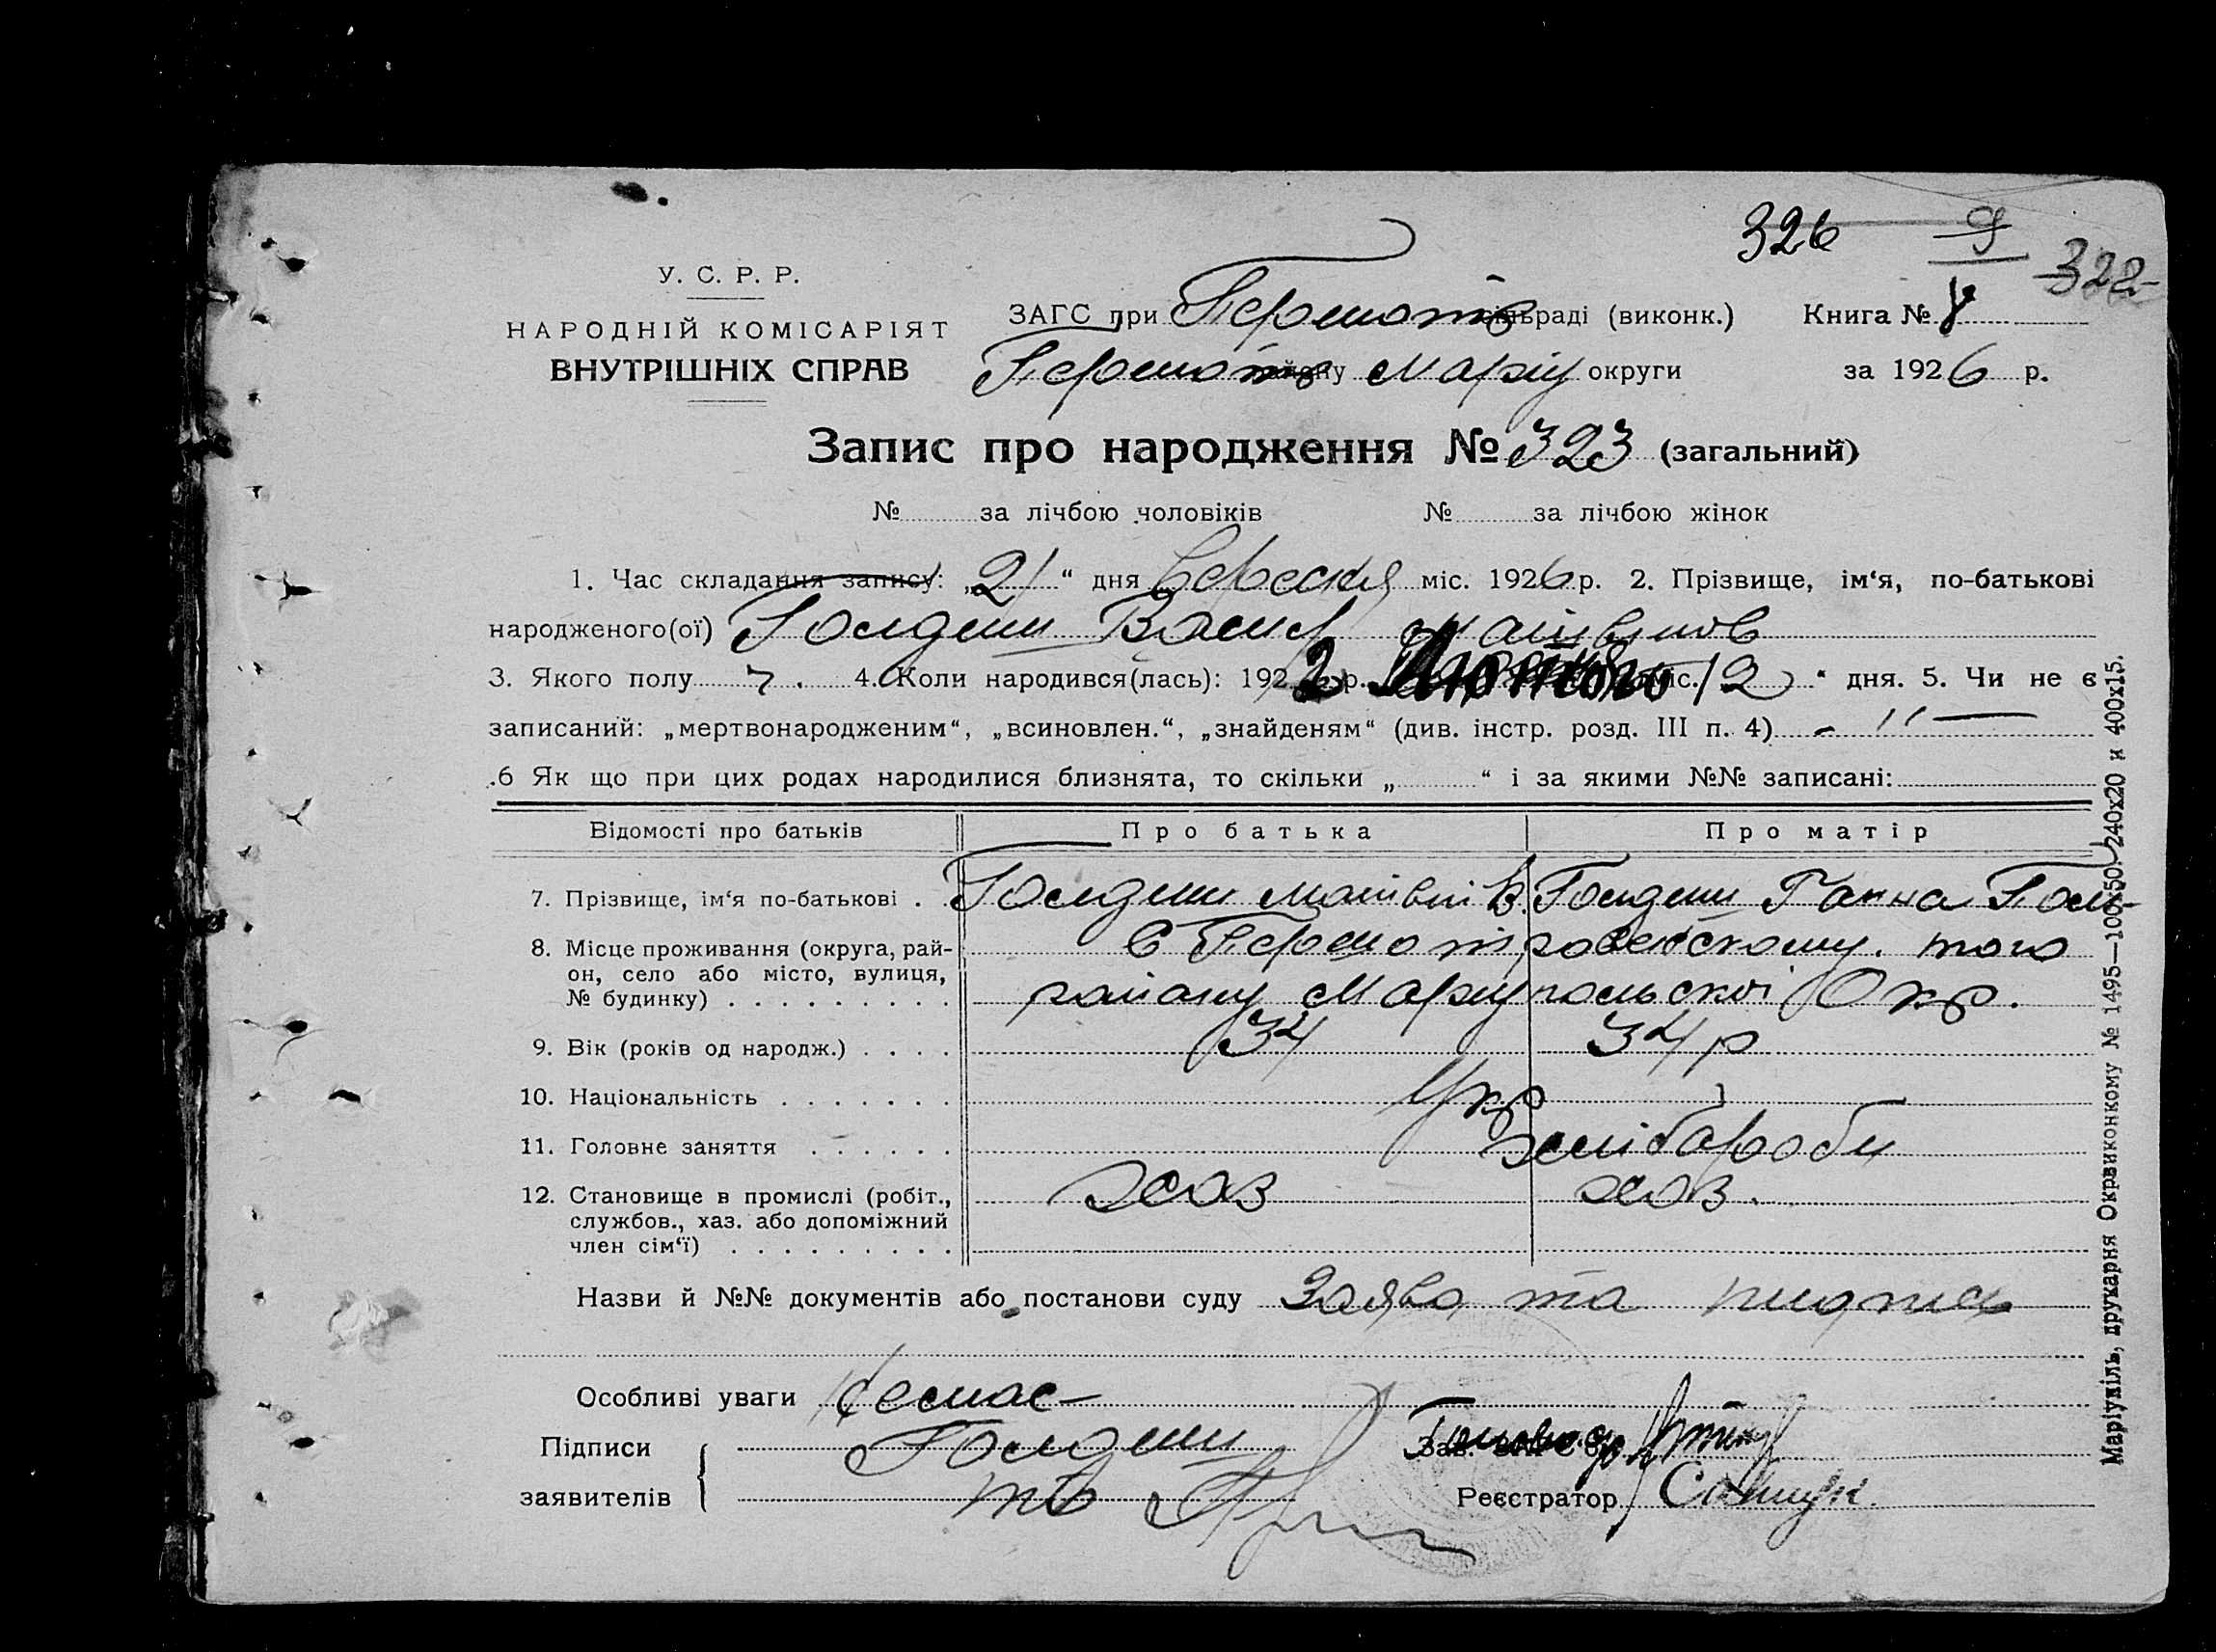 326 9 322
У. С. Р. Р.
НАРОДНІЙ КОМІСАРІЯТ
ВНУТРІШНІХ СПРАВ
ЗАГС при Першотр сільраді (виконк.) Книга № V
Першотр району Маріу округи за 1926 р.
Запис про народження № 323 (загальний)
№ за лічбою чоловіків № за лічбою жінок
1. Час складання запису: „21“ дня Вересня міс. 1926 р. 2. Прізвище, ім‘я, по-батькові
народженого(ої)
3. Якого полу ч. 4. Коли народився(лась): 1922 р. Лютого міс. 12 “ дня. 5. Чи не є
записаний: „мертвонародженим“, „всиновлен.“, „знайденям“ (див. інстр. розд. III п. 4) - ,, —
.6 Як що при цих родах народилися близнята, то скільки „ “ і за якими №№ записані:
Відомості про батьків Про батька Про матір
7. Прізвище, ім‘я по-батькові . Матвій В. Ганна
8. Місце проживання (округа, рай- С Першотр того
он, село або місто, вулиця,
№ будинку) . . . . . . . . . району Маріупольскої Окр.
9. Вік (років од народж.) . . . . 34 34 р
10. Національність . . . . . . . Укр
11. Головне заняття . . . . . . хлібароби
12. Становище в промислі (робіт., хаз хаз.
службов., хаз. або допоміжний
член сім‘ї) . . . . . . . . .
Назви й №№ документів або постанови суду Заява та
Особливі уваги Немає
Підписи
заявителів
Реєстратор
Маріупіль, друкарня Окрвиконкому № 1495—100х50. 240х20 и 400х15.